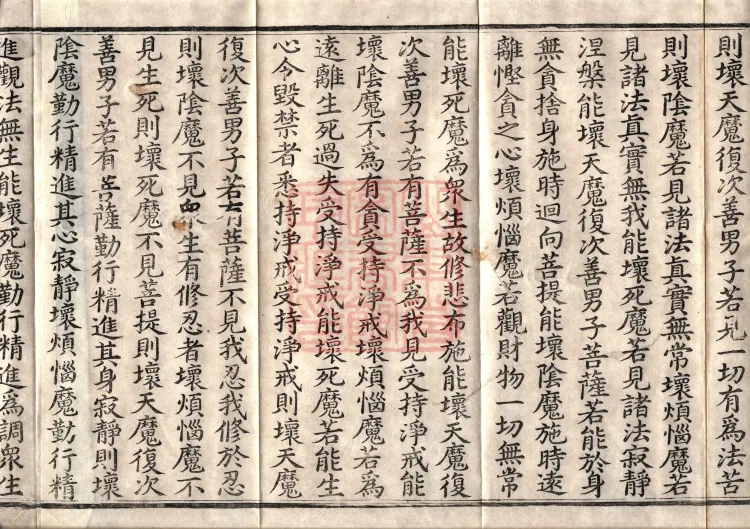 則壞天魔復次善男子若見一切有為法苦
則壞陰魔若見諸法真實無常壞煩惱魔若
見諸法真實無我能壞死魔若見諸法寂靜
涅槃能壞天魔復次善男子菩薩若能於身
無貪捨身施時迴向菩提能壞陰魔施時遠
離慳貪之心壞煩惱魔若觀財物一切無常
能壞死魔為眾生故修悲布施能壞天魔復
次善男子若有菩薩不為我見受持淨戒能
壞陰魔不為有貪受持淨戒壞煩惱魔若為
遠離生死過失受持淨戒能壞死魔若能生
心令毀禁者悉持淨戒受持淨戒則壞天魔
復次善男子若有菩薩不見我忍我修於忍
則壞陰魔不見眾生有修忍者壞煩惱魔不
見生死則壞死魔不見菩提則壞天魔復次
善男子若有菩薩勤行精進其身寂靜則壞
陰魔勤行精進其心寂靜壞煩惱魔勤行精
進觀法無生能壞死魔勤行精進為調眾生